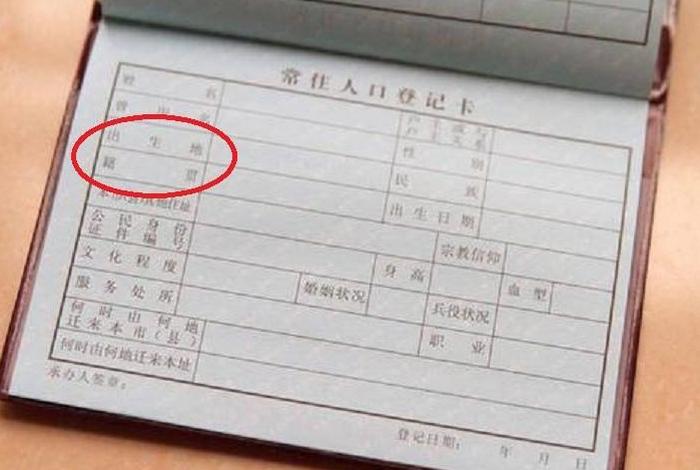 常住人口登记卡
姓名
曾用名 性别
出生地 民族
籍贯 出生日期
本市(县)其他住址 宗教信仰
公民身份证件编号 身高 血型
文化程度 婚姻状况 兵役状况
服务处所 职业
何时由何地迁来本市(县)
何时由何地迁来本址
承办人签章：
登记日期： 年 月 日